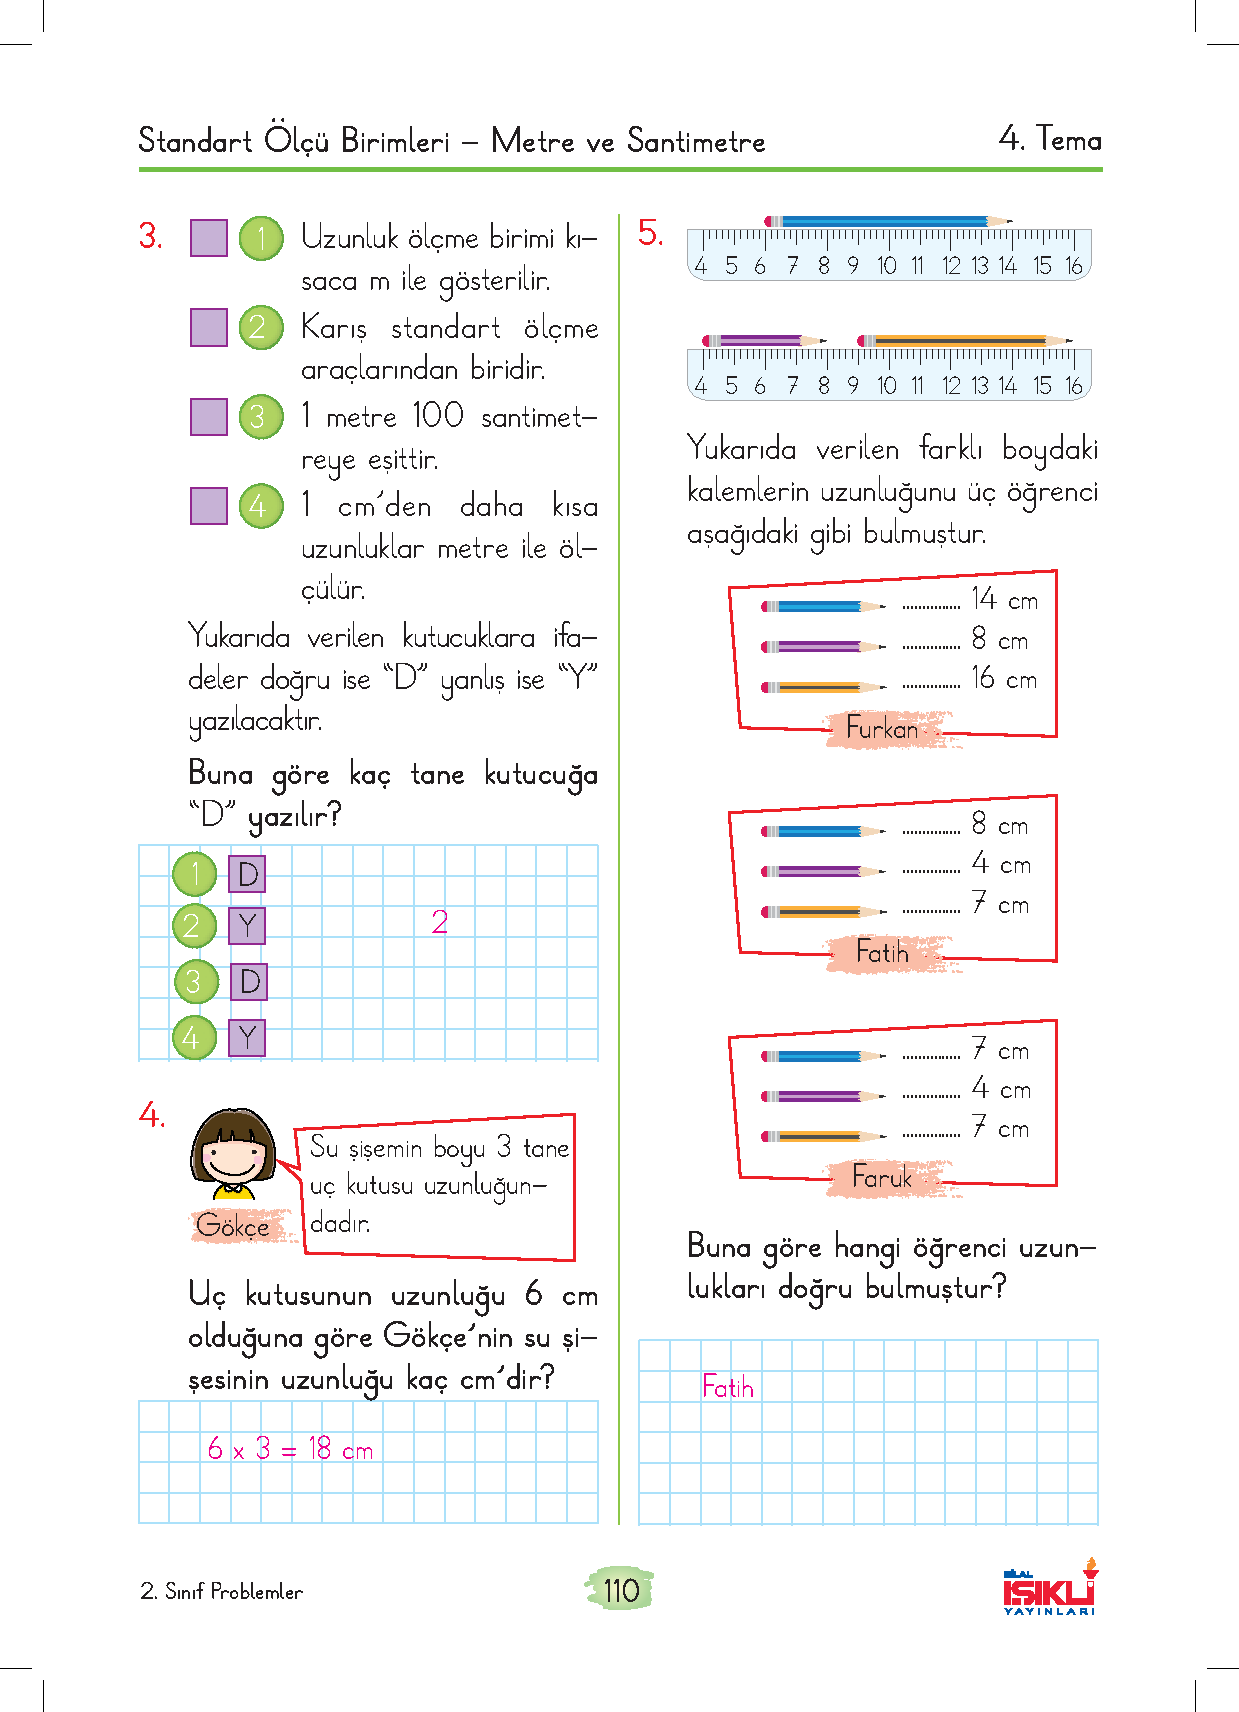 Standart Ölçü Birimleri – Metre ve Santimetre
4. Tema
3.
1 Uzunluk ölçme birimi kı-
saca m ile gösterilir.
2 Karış standart ölçme
araçlarından biridir.
3 1 metre 100 santimet-
reye eşittir.
4 1 cm'den daha kısa
uzunluklar metre ile öl-
çülür.
Yukarıda verilen kutucuklara ifa-
deler doğru ise “D” yanlış ise “Y”
yazılacaktır.
Buna göre kaç tane kutucuğa
“D” yazılır?
1 D
2 Y 2
3 D
4 Y
4.
Su şişemin boyu 3 tane
uç kutusu uzunluğun-
dadır.
Gökçe
Uç kutusunun uzunluğu 6 cm
olduğuna göre Gökçe'nin su şi-
şesinin uzunluğu kaç cm'dir?
6 x 3 = 18 cm
5.
4 5 6 7 8 9 10 11 12 13 14 15 16
4 5 6 7 8 9 10 11 12 13 14 15 16
Yukarıda verilen farklı boydaki
kalemlerin uzunluğunu üç öğrenci
aşağıdaki gibi bulmuştur.
............... 14 cm
............... 8 cm
............... 16 cm
Furkan
............... 8 cm
............... 4 cm
............... 7 cm
Fatih
............... 7 cm
............... 4 cm
............... 7 cm
Faruk
Buna göre hangi öğrenci uzun-
lukları doğru bulmuştur?
Fatih
2. Sınıf Problemler
110
BİLAL
IŞIKLI
YAYINLARI